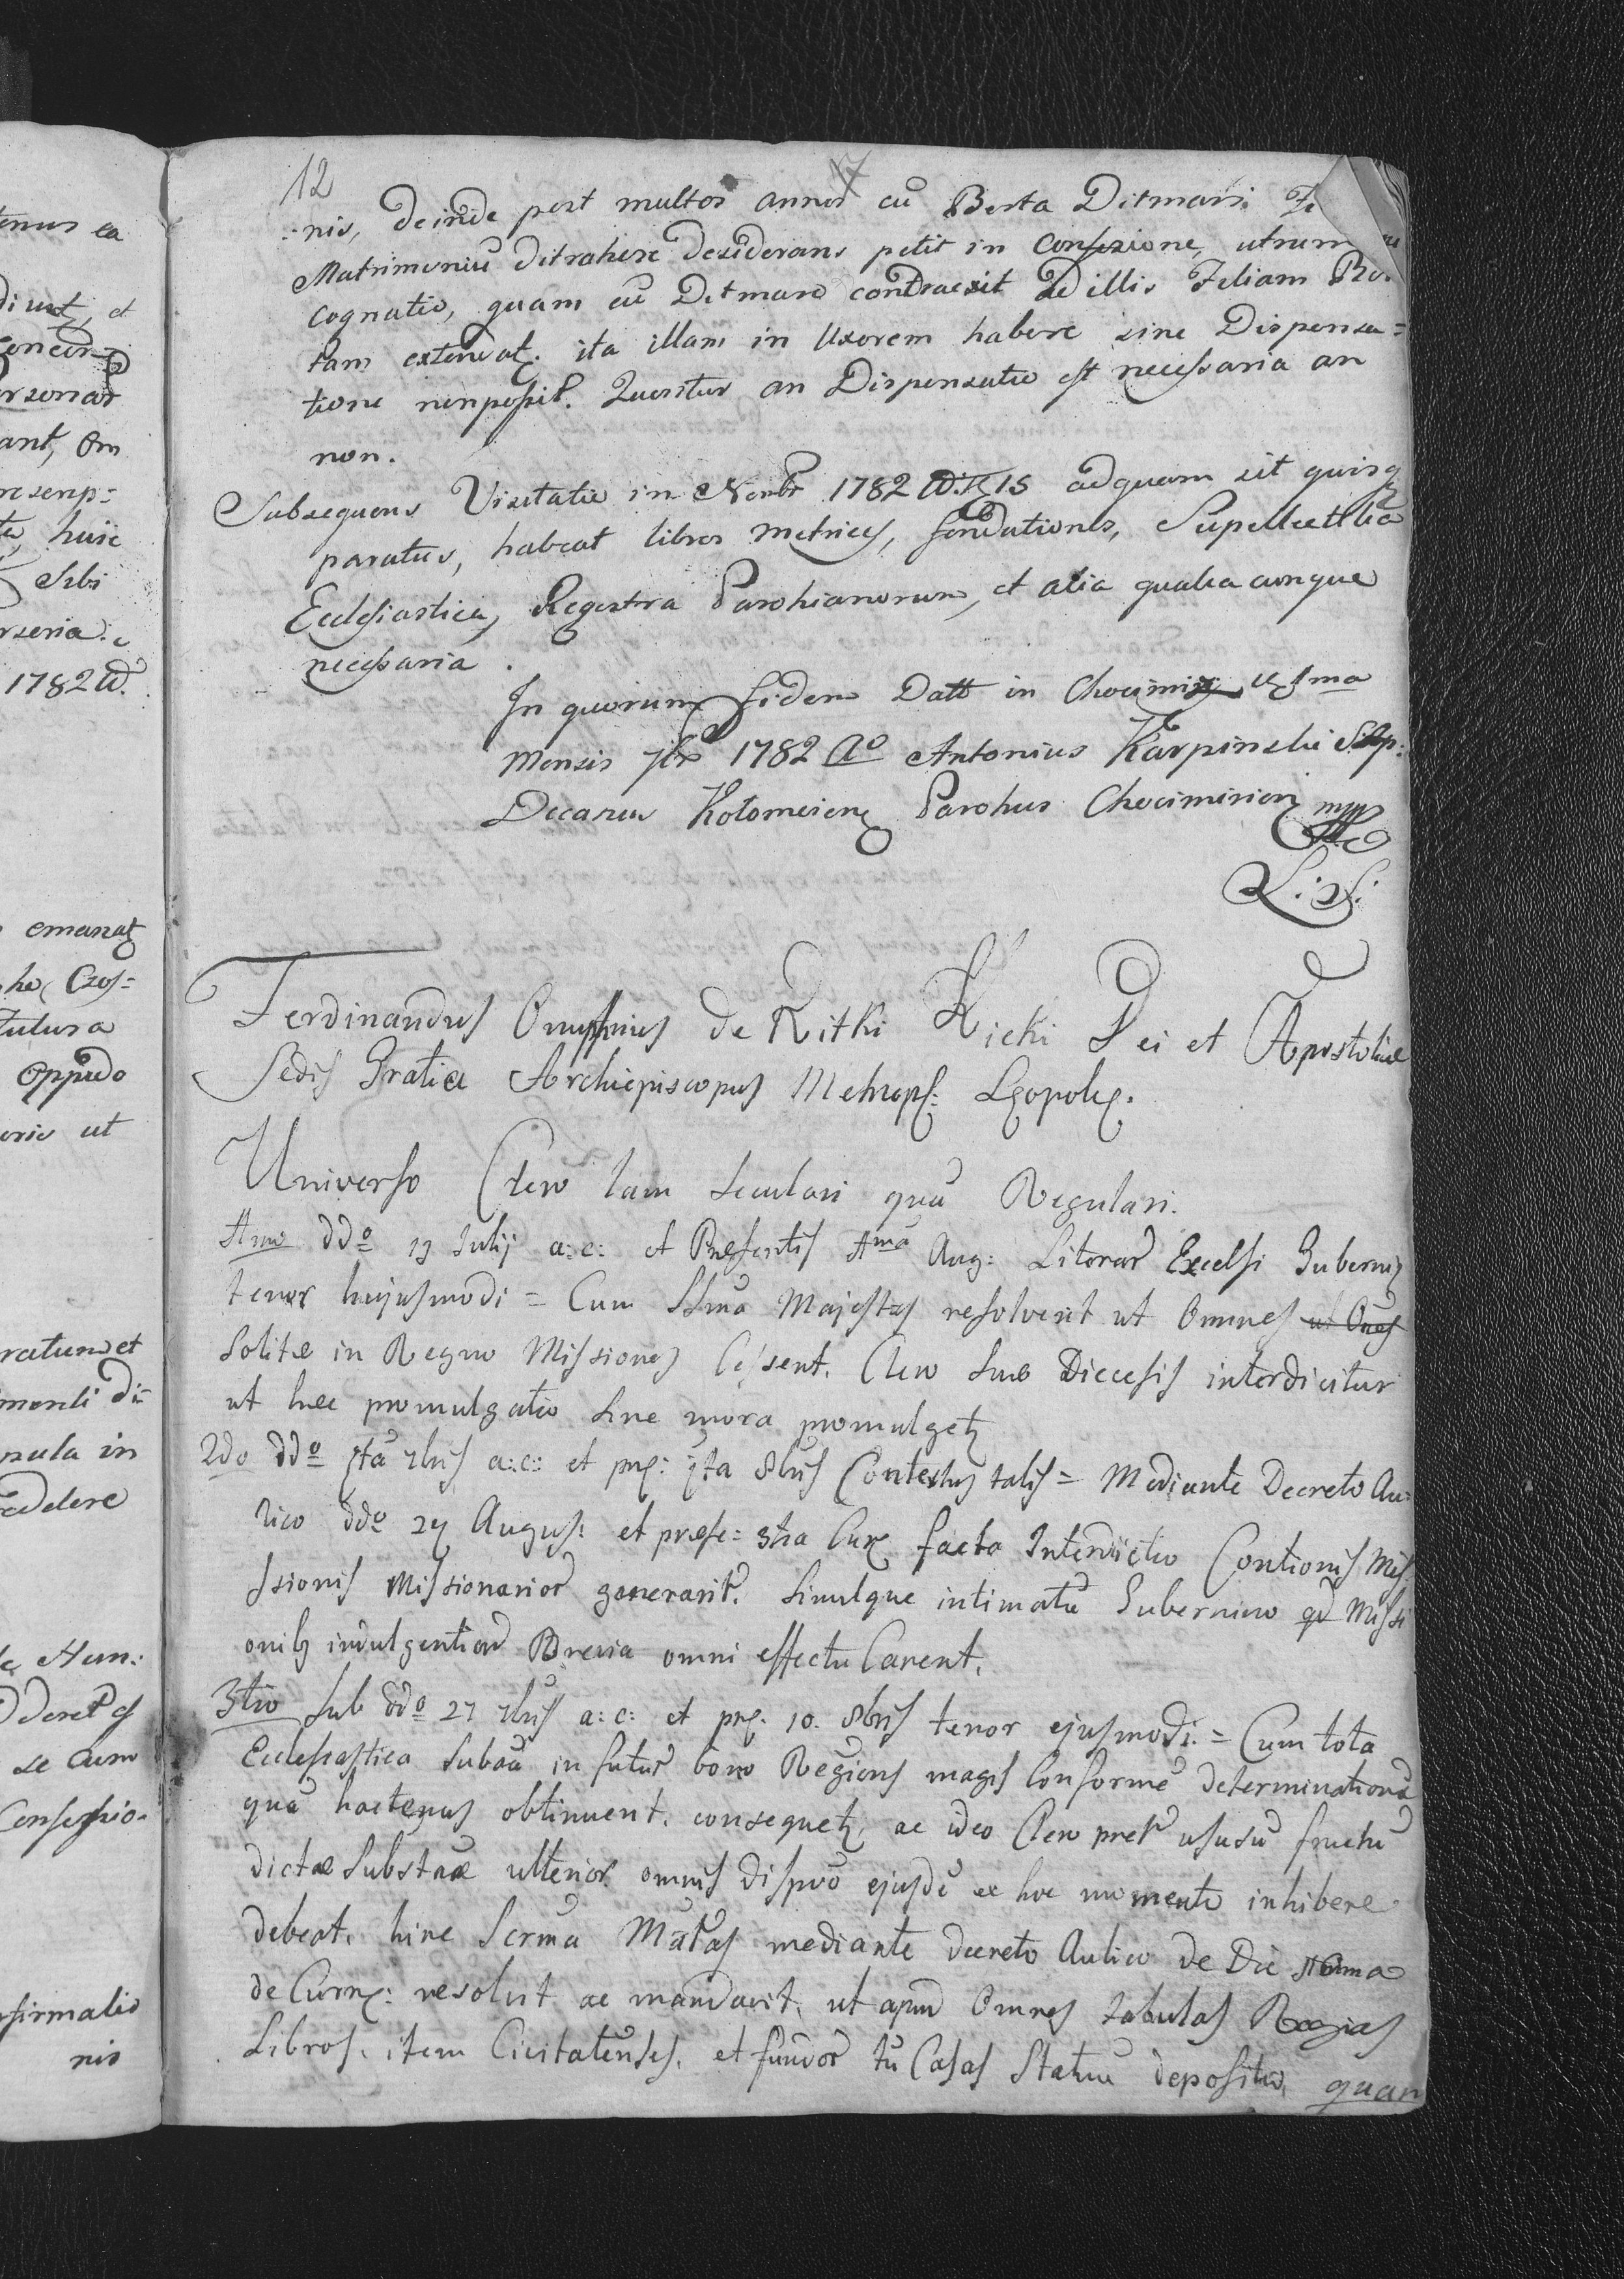 12
17
:nis, deinde post multos annos cũ Berta Ditmari
Matrimoniũ ditrahere desiderans petit in Confesione, utrum
cognatio, quam cũ Ditmaro contraexit ad illis Filiam Ber
tam extendat. ita illam in Uxorem habere sine Dispensa=
tione nonposit. Queritur an Dispensatio est necessaria an
non.
Subsequens Visitatio in Novbr 1782 15 adquam sit quisq
paratus, habeat libros metrices, fondationes, Supellectilia
Ecclesiastica, Regestra Parohianorum, et alia qualiacunque
necessaria.
In quorum fidem Datt in Chocimirz 1ma
Mensis 7br 1782 Ao Antonius Karpinski
Decanus Kołomeiens Parohus Chocimirien mpp
L: S:
Ferdinandus Onuphrius de Kitki Kicki Dei et Apostolicæ
Sedis Gratia Archiepiscopus Metropl: Leopoli.
Universo Clero tam seculari quã Regulari.
Amo ddo 19 Julij a: c: et Præsentis Ama Aug: Literar Excelsi Gubernij
tenor hujusmodi = Cum SSma Majestas resolverit ut Omnes ut Ones
Solitæ in Regno Missiones Cessent. Clero Suæ Diecesis interdicitur
ut hæc promulgatio sine mora promulget
2do ddo 5ta 7bris a: c: et præ: 5ta 8bris Contextus talis = Mediante Decreto Au=
lico ddo 24 Augus: et præse= 3tia Cur facta Interdictio Contionis Mis
ssionis Missionarior generarit. Simulque intimatũ Gubernino qd Missi
onib indulgentior Brevia omni effectu Carent.
3tio Sub ddo 27 7bris a: c: et præ: 10. 8bris tenor ejusmodi. = Cum tota
Ecclesiastica Subaã in futur bono Regions magis Conformẽ determinationẽ
quã hactenus obtinuent. consequet, ac ideo Clero præt ususũ fructũ
dictæ Substaæ ulterior omnis dispoõ ejusdẽ ex hoc momento inhibere
debeat. hinc Scrma Mattas mediante decreto Aulico de Die
de Curn: resolvit ac mandavit, ut apud Omnes tabulas Regias
Libros. item Civitatenses. et fundor tũ Casas Statuu depositio, quan